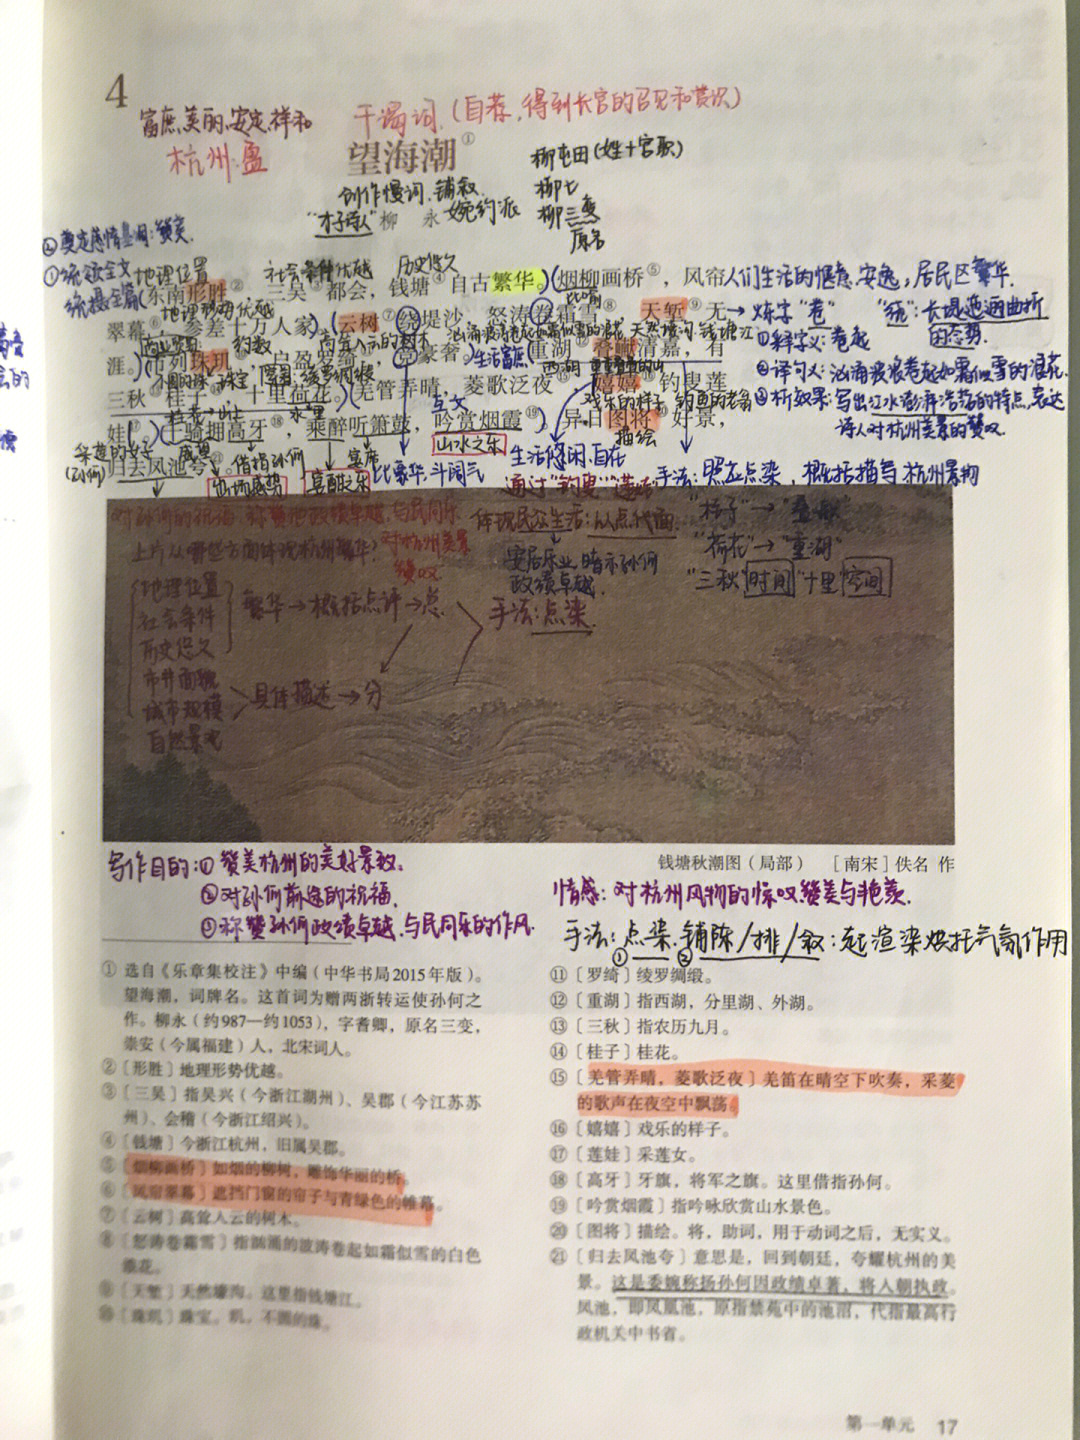 4
富庶、美丽、安定、祥和
干谒词（自荐，得到长官的召见和赏识）
杭州盛
望海潮①
柳屯田(姓+官职)
柳七
柳三变
原名
创作慢词、铺叙
"才子词人"柳 永 婉约派
②奠定感情基调：赞美.
①统领全文
统摄全篇
地理位置
社会条件优越
历史悠久
东南形胜②，三吴③都会，钱塘④自古繁华。烟柳画桥⑤，风帘
人们生活的惬意、安逸，居民区繁华.
翠幕⑥，参差十万人家。云树⑦绕堤沙，怒涛卷霜雪⑧，天堑⑨无
炼字"卷"
"绕"：长堤迤逦曲折的态势.
①释字义：卷起
涯。市列珠玑⑩，户盈罗绮⑪，竞豪奢。重湖⑫叠巘清嘉，有
生活富庶
②译句义：汹涌波浪卷起如霜似雪的浪花.
三秋⑬桂子⑭，十里荷花。羌管弄晴，菱歌泛夜⑮，嬉嬉⑯钓叟莲
③析效果：写出江水澎湃浩荡的特点，表达
诗人对杭州美景的赞叹.
娃⑰。千骑拥高牙⑱，乘醉听箫鼓，吟赏烟霞⑲。异日图将⑳好景，
互文
山水之乐
描绘
归去凤池夸㉑。
借指孙何
宴酣之乐
比豪华、斗阔气
生活悠闲、自在
手法：点染，概括描写杭州景物
对孙何的祝福，称赞他政绩卓越，与民同乐
上片从哪些方面体现杭州繁华？
对杭州美景赞叹
体现民众生活：以点代面
安居乐业，暗示孙何
政绩卓越.
"桂子"→"叠巘"
"荷花"→"重湖"
"三秋"时间"十里"空间
地理位置
社会条件
历史悠久
市井面貌
城市规模
自然景观
繁华→概括点评→总
具体描述→分
手法：点染
钱塘秋潮图（局部） ［南宋］佚名 作
写作目的：①赞美杭州的美好景致。
②对孙何前途的祝福，
③称赞孙何政绩卓越、与民同乐的作风.
情感：对杭州风物的惊叹、赞美与艳羡.
手法：①点染、②铺陈/排/叙：起渲染烘托气氛作用
① 选自《乐章集校注》中编（中华书局2015年版）。
望海潮，词牌名。这首词为赠两浙转运使孙何之
作。柳永（约987—约1053），字耆卿，原名三变，
崇安（今属福建）人，北宋词人。
②〔形胜〕地理形势优越。
③〔三吴〕指吴兴（今浙江湖州）、吴郡（今江苏苏
州）、会稽（今浙江绍兴）。
④〔钱塘〕今浙江杭州，旧属吴郡。
⑤〔烟柳画桥〕如烟的柳树，雕饰华丽的桥。
⑥〔风帘翠幕〕遮挡门窗的帘子与青绿色的帷幕。
⑦〔云树〕高耸入云的树木。
⑧〔怒涛卷霜雪〕指汹涌的波涛卷起如霜似雪的白色
浪花。
⑨〔天堑〕天然壕沟。这里指钱塘江。
⑩〔珠玑〕珠宝。玑，不圆的珠。
⑪〔罗绮〕绫罗绸缎。
⑫〔重湖〕指西湖，分里湖、外湖。
⑬〔三秋〕指农历九月。
⑭〔桂子〕桂花。
⑮〔羌管弄晴，菱歌泛夜〕羌笛在晴空下吹奏，采菱
的歌声在夜空中飘荡。
⑯〔嬉嬉〕戏乐的样子。
⑰〔莲娃〕采莲女。
⑱〔高牙〕牙旗，将军之旗。这里借指孙何。
⑲〔吟赏烟霞〕指吟咏欣赏山水景色。
⑳〔图将〕描绘。将，助词，用于动词之后，无实义。
㉑〔归去凤池夸〕意思是，回到朝廷，夸耀杭州的美
景。这是委婉称扬孙何因政绩卓著，将入朝执政。
凤池，即凤凰池，原指禁苑中的池沼，代指最高行
政机关中书省。
第一单元 17